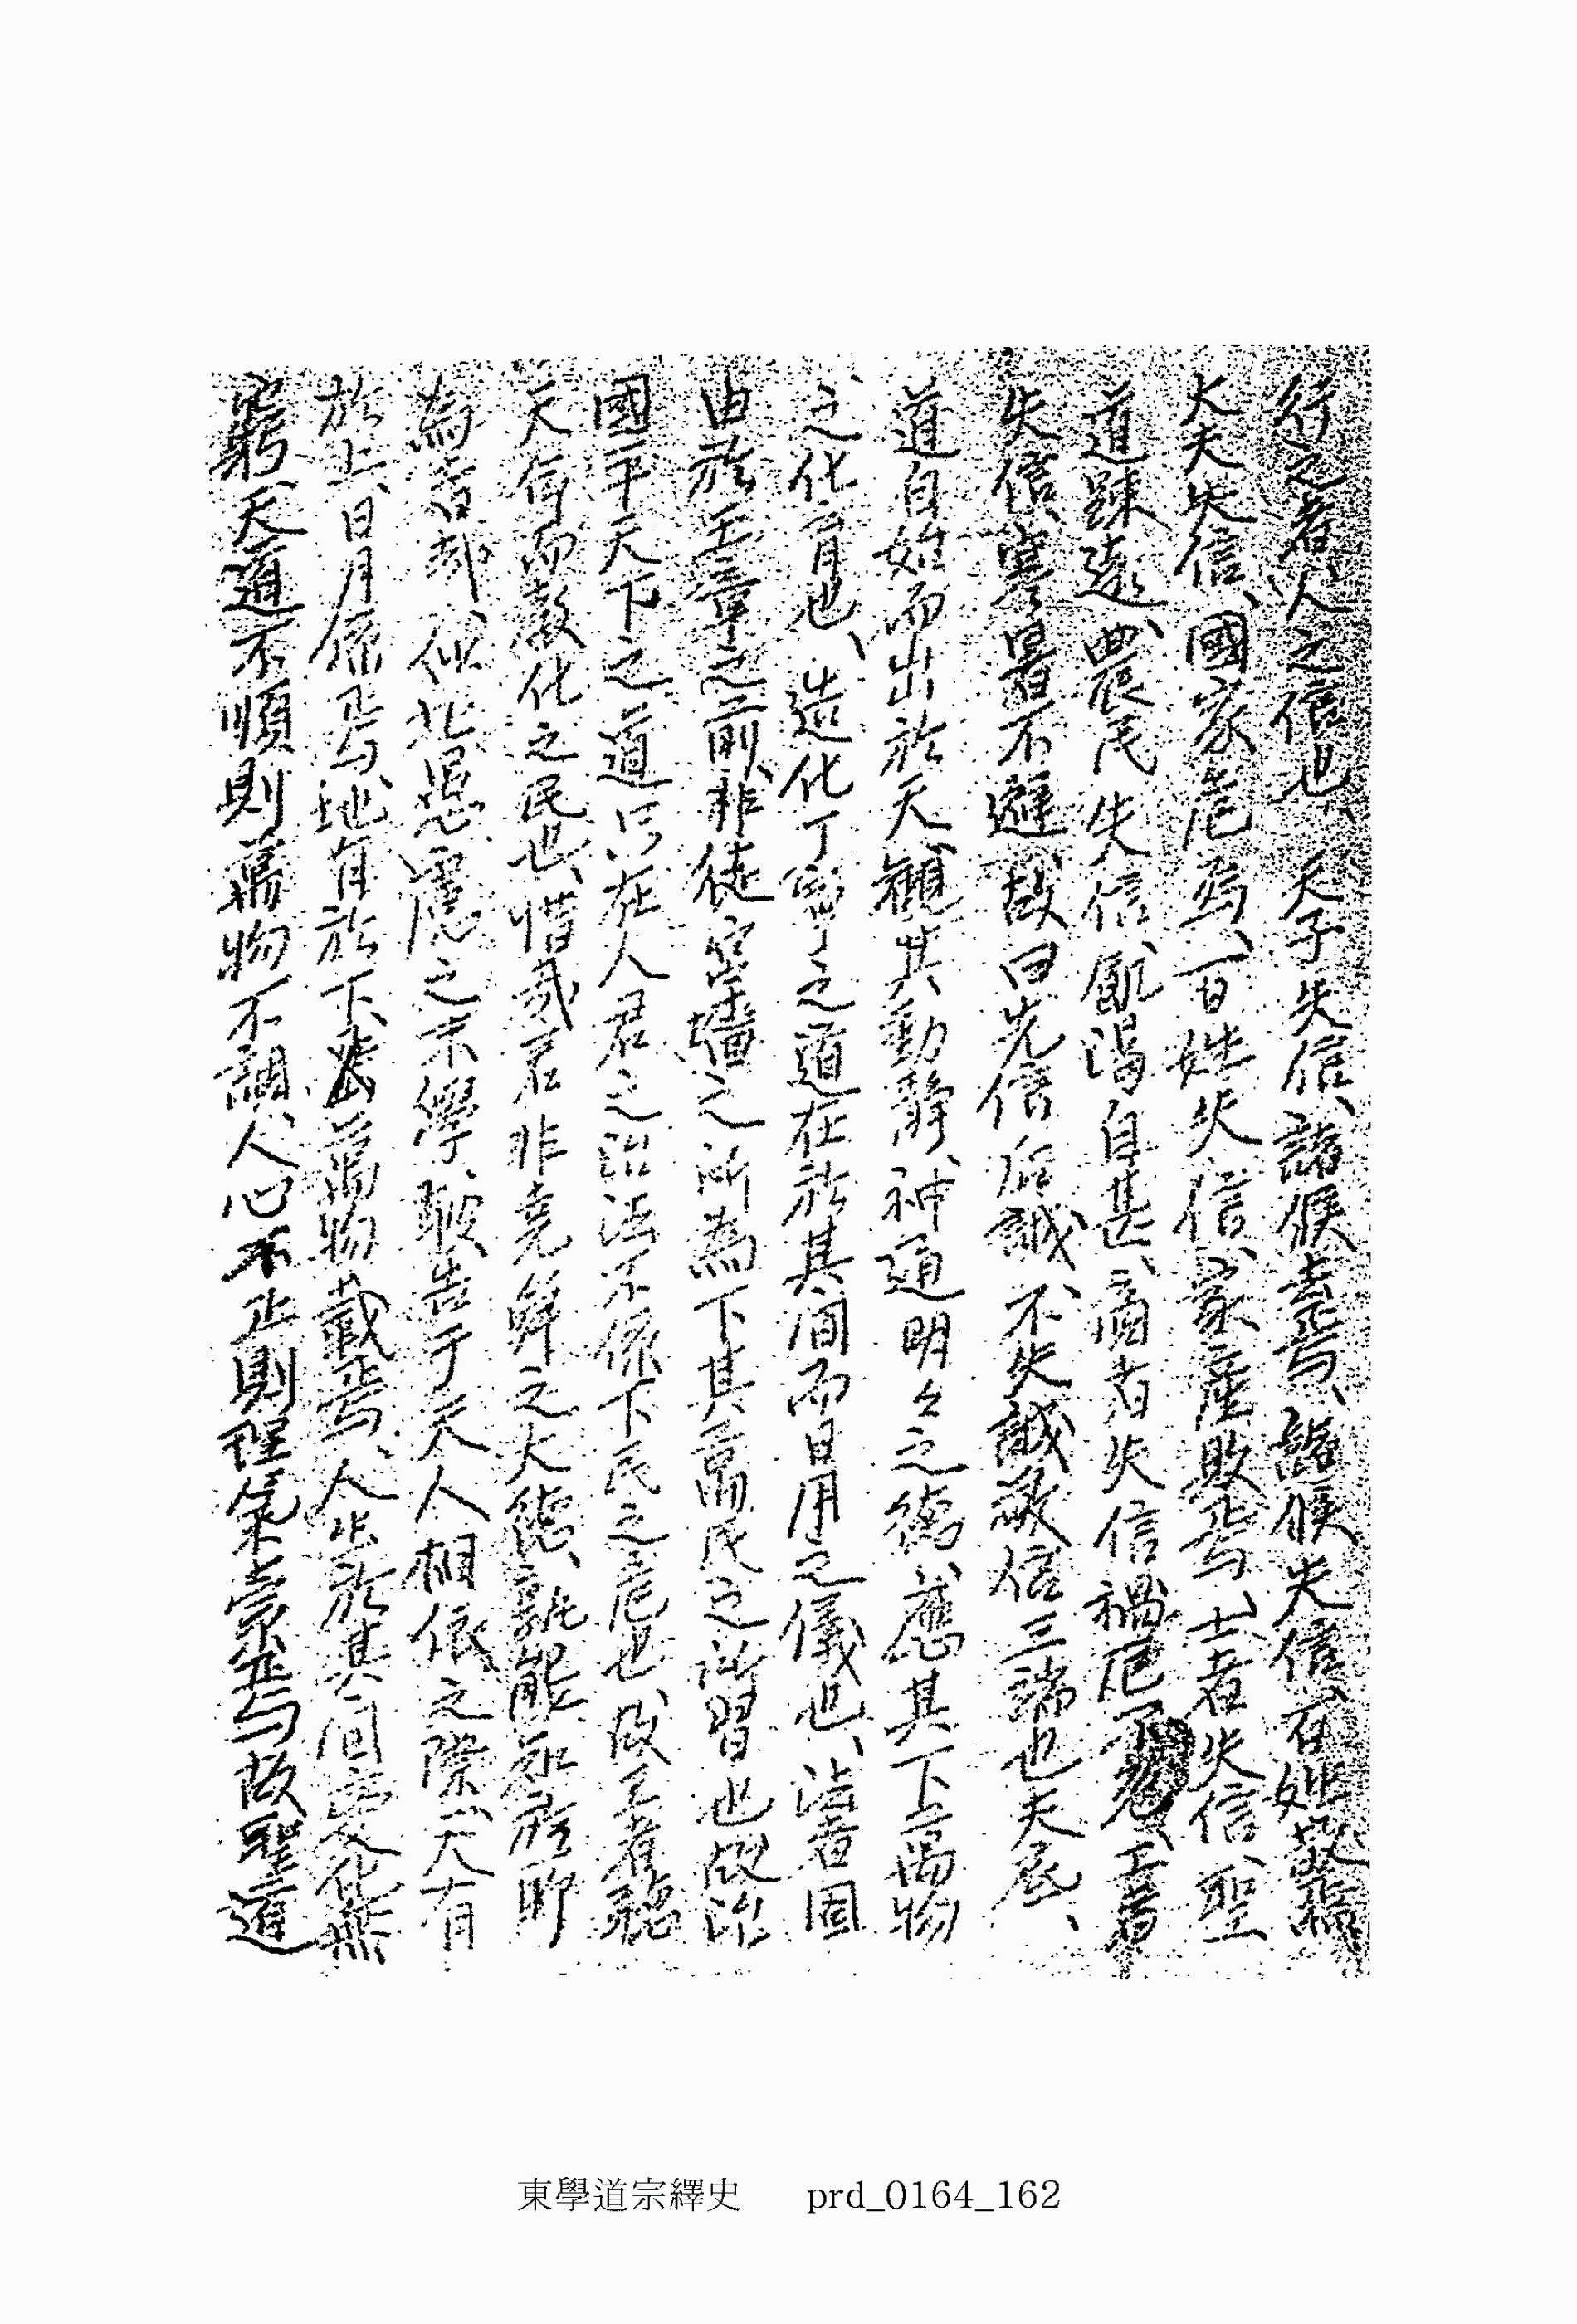 行之者人之信也、天子失信、諸侯去焉、諸侯失信、百姓散焉、
大夫失信、國家危焉、百姓失信、家產敗焉、士者失信、聖
道踈遠、農民失信、飢渴自甚、商者失信、禍厄不免、王者
失信、寒暑不避、故曰先信後誠、不失誠敬信三端也、天展、
道自始而出於天、觀其動靜、神通明々之德、應其下萬物
之化育也、造化丁寧之道在於其間而日用之儀也、治者固
由於王章之前、非徒宮墻之所為、下其萬民之所習也、故治
國平天下之道、只在人君之治法、不係下民之危也、故王者
天命而敎化之民也、惜哉、若非堯舜之大德、孰能知於
為吉却、似此愚慮之末學、敢告于天人相依之際、天有
於上、日月係焉、地有於下、萬物載焉、人出於其間、變化無
窮、天道不順則萬物不調、人心不正則理氣索焉、故聖道